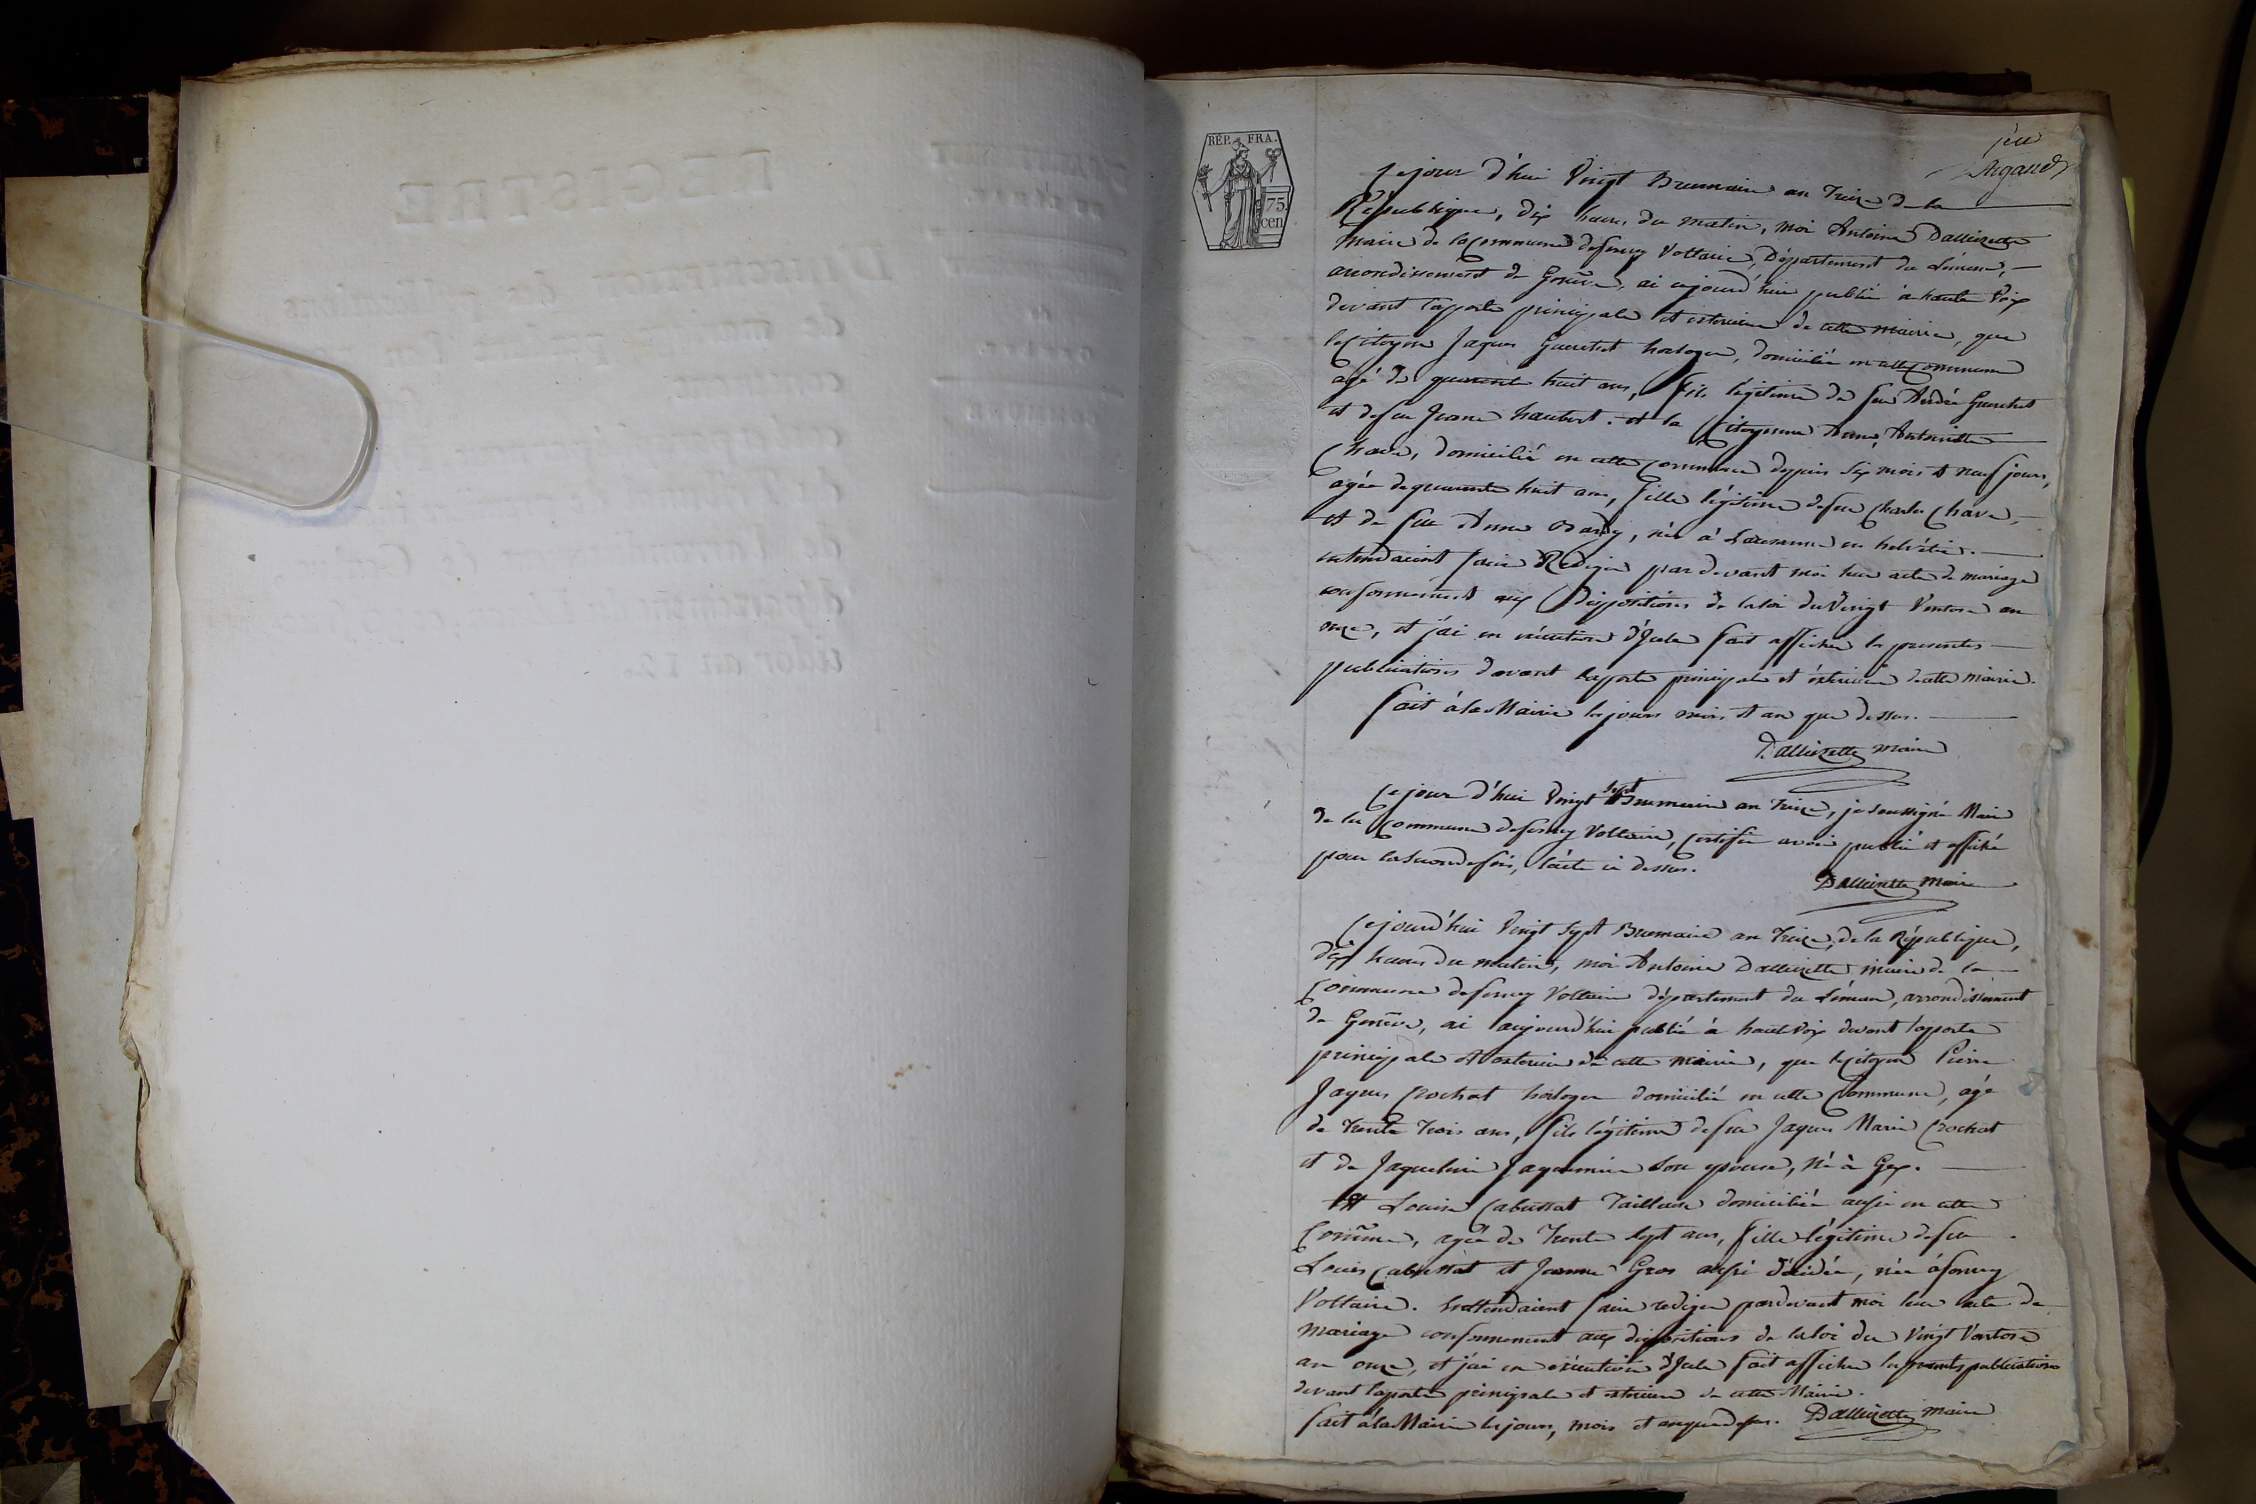 REP. FRA.
75.
cen
Argand
Ce jour d'hui Vingt Brumaire an Treize de la
République, dix heures du matin, moi Antoine Dallizette
Maire de la Commune de ferney Voltaire, Département du Léman,
arrondissement de Genève, ai aujourd'hui publié à haute Voix
devant la porte principale et exterieure de cette mairie, que
le Citoyen Jaques Guerchet horloger, domicilié en cette Commune
agé de quarante huit ans, fils légitime de feu Guerchet
et de feue Jeanne haubert. et la Citoyenne Anne Antoinette
Chave, domicilié en cette Commune depuis six mois et neuf jours,
agée de quarante huit ans, fille légitime de feu Charles Chave,
et de feue Anne née à Lausanne en helvétie.
entendaient faire Rediger par devant moi leur acte de mariage
conformément aux Dispositions de la loi du Vingt Ventose an
onze, et j'ai en exécution d'Icelle fait afficher les presentes
publications devant la porte principale et éxterieure de cette Mairie.
fait à la Mairie les jours mois et an que dessus.
Dallizette maire
Ce jour d'hui Vingt sept Brumaire an Treize, je soussigné Maire
de la Commune de ferney Voltaire, Certifie avoir publié et affiché
pour la seconde fois, l'acte ci dessus.
Dallizette maire
Cejourd'hui Vingt Sept Brumaire an Treize, de la République,
dix heures du matin, moi Antoine Dallizette maire de la
Commune de ferney Voltaire département du Léman, arrondissement
de Genève, ai aujourd'hui publié à haute Voix devant la porte
principale et exterieure de cette mairie, que le Citoyen Pierre
Jaques Crochat horloger domicilié en cette Commune, agé
de Trente Trois ans, fils légitime de feu Jaques Marie Crochat
et de Jaqueline Jaquemier son epouse, né à Gex.
Et Louise Cabussat Tailleuse domiciliée aussi en cette
Comñe, agée de Trente Sept ans, fille légitime de feu
Louis Cabussat et Jeanne Gros aussi décédée, née à ferney
Voltaire. entendaient faire rediger pardevant moi leur acte de
mariage conformement aux dispositions de la loi du Vingt Ventose
an onze, et j'ai en exécution d'Icelle fait afficher les presentes publications
devant la porte principale et exterieure de cette Mairie.
fait à la Mairie les jours, mois et an que dessus. Dallizette maire